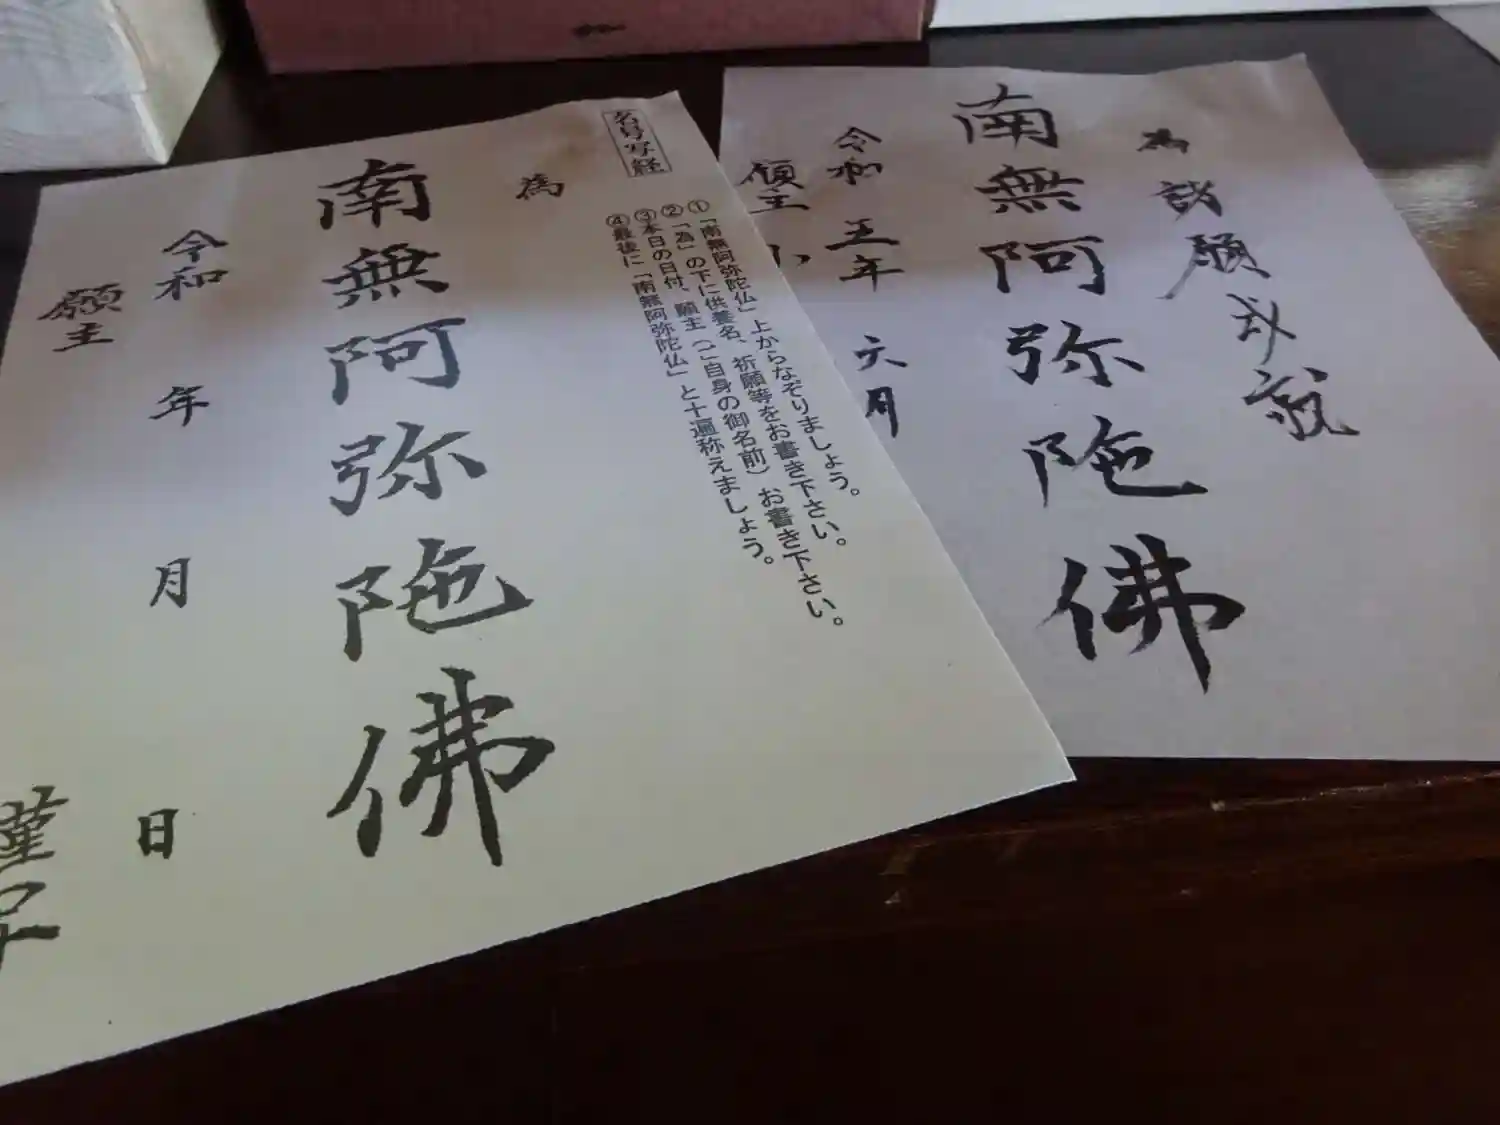 名号写経
①「南無阿弥陀仏」上からなぞりましょう。
②「為」の下に供養名、祈願等をお書き下さい。
③本日の日付、願主（ご自身の御名前）お書き下さい。
④最後に「南無阿弥陀仏」と十遍称えましょう。
為
南無阿弥陁佛
令和 年 月 日
願主 謹写
為 諸願成就
南無阿弥陁佛
令和 五年 六月
願主 小